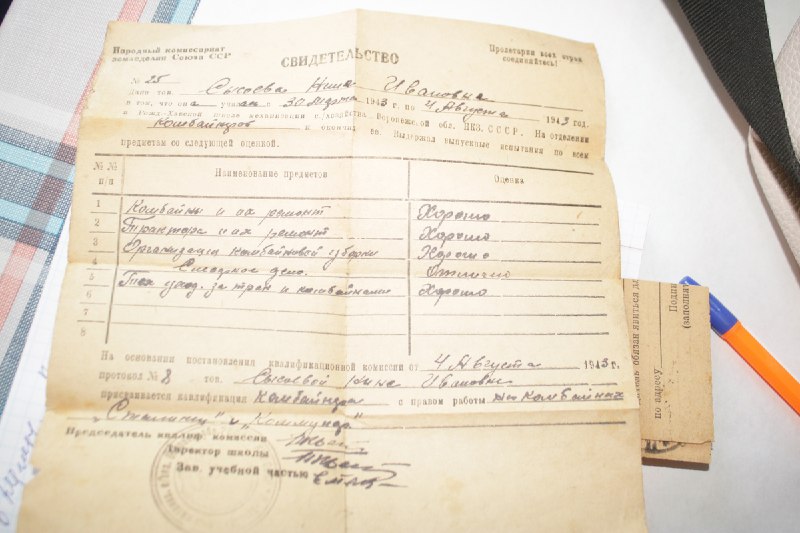 Народный комиссариат
земледелия Союза ССР
Пролетарии всех стран
соединяйтесь!
СВИДЕТЕЛЬСТВО
№ 25
Дано тов. Сысоева Нина Ивановна
в том, что она училась с 30 Марта 1943 г. по 4 Августа 1943 год.
в Рожд-Хавской школе механизации с/хозяйства Воронежской обл. НКЗ. СССР. На отделении
комбайнеров и окончил ее. Выдержал выпускные испытания по всем
предметам со следующей оценкой.
№ № п/п Наименование предметов Оценка
1 Комбайны и их ремонт Хорошо
2 Трактора и их ремонт Хорошо
3 Организация комбайновой уборки Хорошо
4 Слесарное дело. Отлично
5 Тех уход. за трак и комбайнами Хорошо
6
7
8
На основании постановления квалификационной комиссии от 4 Августа 1943 г.
протокол № 8 тов. Сысоевой Нина Ивановны
присваивается квалификация Комбайнера с правом работы на комбайнах
„Сталинец" и „Коммунар"
Председатель квалиф. комиссии
Директор школы
Зав. учебной частью
обязан явиться
по адресу
Подпи
(заполня